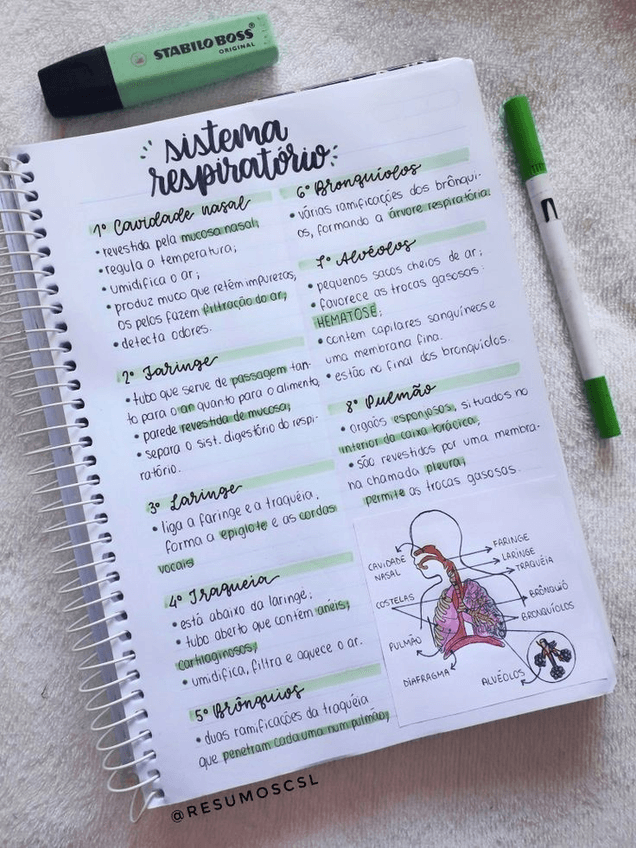 STABILO BOSS
ORIGINAL
sistema
respiratório
1º Cavidade nasal
• revestida pela mucosa nasal;
• regula a temperatura;
• umidifica o ar;
• produz muco que retém impurezas,
os pelos fazem filtração do ar;
• detecta odores.
2º Faringe
• tubo que serve de passagem tan-
to para o ar quanto para o alimento,
• parede revestida de mucosa;
• separa o sist. digestório do respi-
ratório.
3º Laringe
• liga a faringe e a traquéia,
forma a epiglote e as cordas
vocais
4º Traqueia
• está abaixo da laringe;
• tubo aberto que contém anéis;
cartilaginosos;
• umidifica, filtra e aquece o ar.
5º Brônquios
• duas ramificações da traquéia
que penetram cada uma num pulmão;
6º Bronquíolos
• várias ramificações dos brônqui-
os, formando a árvore respiratória.
7º Alvéolos
• pequenos sacos cheios de ar;
• favorece as trocas gasosas:
HEMATOSE;
• contem capilares sanguíneos e
uma membrana fina.
• estão no final dos bronquíolos.
8º Pulmão
• orgãos esponjosos, situados no
interior da caixa torácica;
• são revestidos por uma membra-
na chamada pleura;
permite as trocas gasosas.
CAVIDADE
NASAL
COSTELAS
PULMÃO
DIAFRAGMA
FARINGE
LARINGE
TRAQUÉIA
BRÔNQUIO
BRONQUÍOLOS
ALVÉOLOS
@RESUMOSCSL